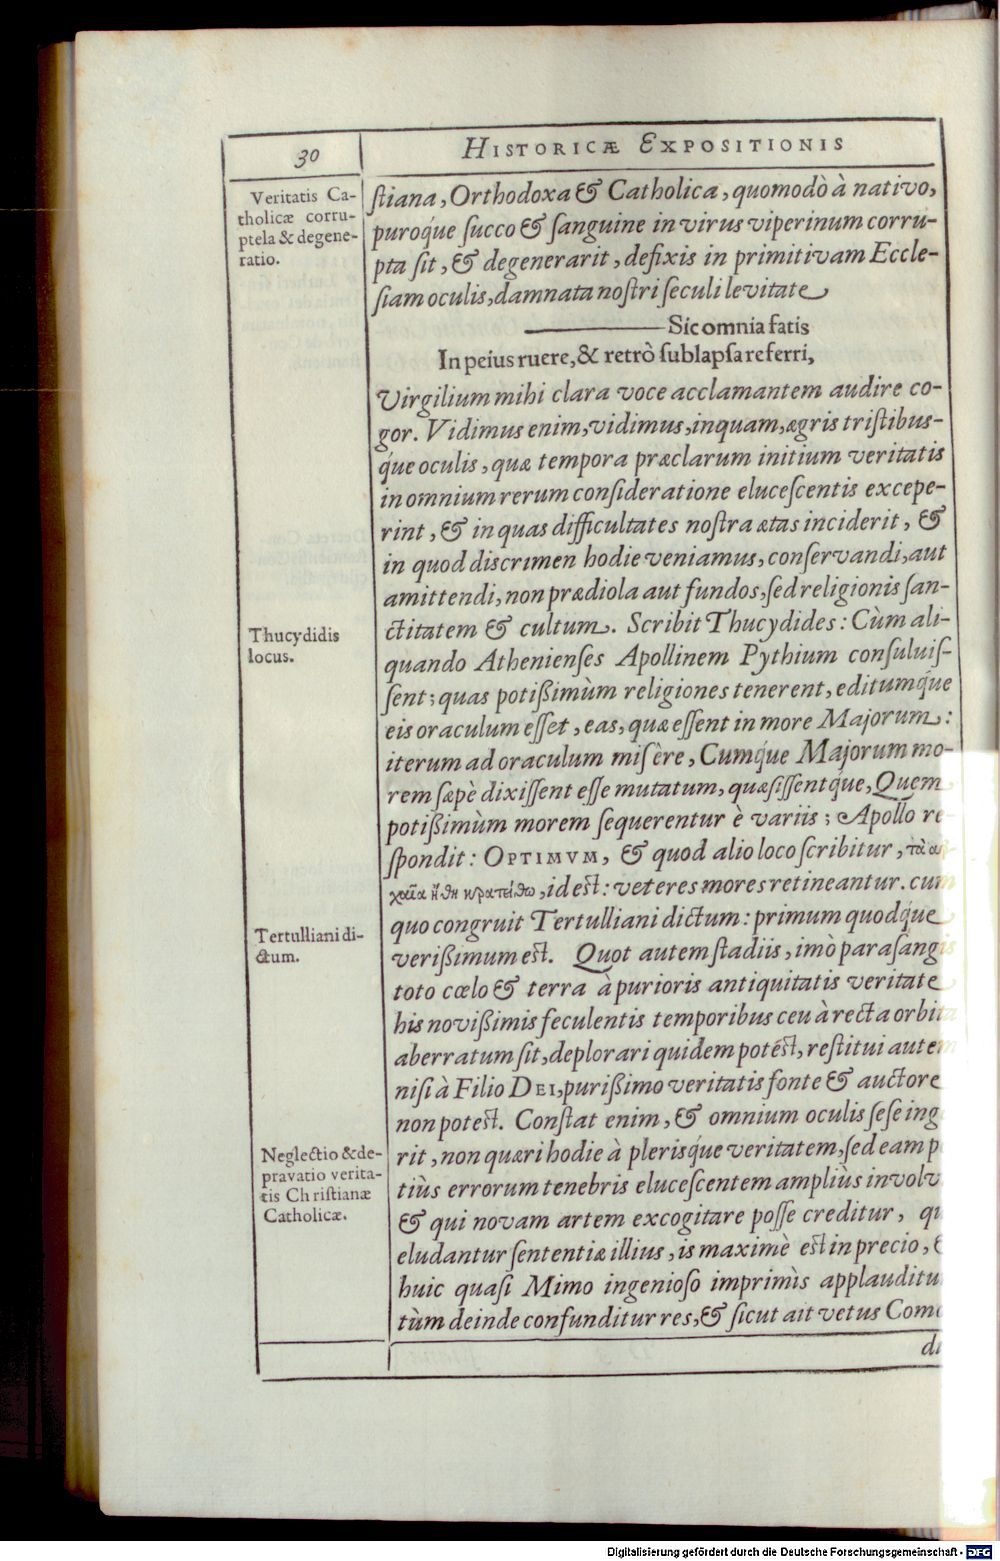 30
HISTORICÆ EXPOSITIONIS
Veritatis Ca-
tholicæ corru-
ptela & degene-
ratio.
ſtiana, Orthodoxa & Catholica, quomodò à nativo,
puroq́ue ſucco & ſanguine in virus viperinum corru-
pta ſit, & degenerarit, defixis in primitivam Eccle-
ſiam oculis, damnata noſtri ſeculi levitate
Sic omnia fatis
In peius ruere, & retrò ſublapſa referri,
Virgilium mihi clara voce acclamantem audire co-
gor. Vidimus enim, vidimus, inquam, ægris triſtibus-
q́ue oculis, quæ tempora præclarum initium veritatis
in omnium rerum conſideratione eluceſcentis excepe-
rint, & in quas difficultates noſtra ætas inciderit, &
in quod discrimen hodie veniamus, conſervandi, aut
amittendi, non prædiola aut fundos, ſed religionis ſan-
ctitatem & cultum. Scribit Thucydides: Cùm ali-
Thucydidis
locus.
quando Athenienſes Apollinem Pythium conſuluiſ-
ſent; quas potißimùm religiones tenerent, editumq́ue
eis oraculum eſſet, eas, quæ eſſent in more Majorum:
iterum ad oraculum misère, Cumq́ue Majorum mo-
rem ſæpè dixiſſent eſſe mutatum, quæſiſſentq́ue, Quem
potißimùm morem ſequerentur è variis; Apollo re-
ſpondit: OPTIMVM, & quod alio loco ſcribitur, τὰ ἀρ-
χαῖα ἤθη κρατείθω, id est: veteres mores retineantur. cum
quo congruit Tertulliani dictum: primum quodq́ue
Tertulliani di-
ctum.
verißimum est. Quot autem ſtadiis, imò paraſangis
toto cœlo & terra à purioris antiquitatis veritate
his novißimis feculentis temporibus ceu à recta orbita
aberratum ſit, deplorari quidem potést, reſtitui autem
niſi à Filio DEI, purißimo veritatis fonte & auctore
non potest. Conſtat enim, & omnium oculis ſeſe
Neglectio & de-
pravatio verita-
tis Chriſtianæ
Catholicæ.
rit, non quæri hodie à pleriſq́ue veritatem, ſed eam
tiùs errorum tenebris eluceſcentem ampliùs
& qui novam artem excogitare poſſe creditur,
eludantur ſententiæ illius, is maximè est in precio,
huic quaſi Mimo ingenioſo imprimìs
tùm deinde confunditur res, & ſicut ait vetus
Digitalisierung gefördert durch die Deutsche Forschungsgemeinschaft - DFG